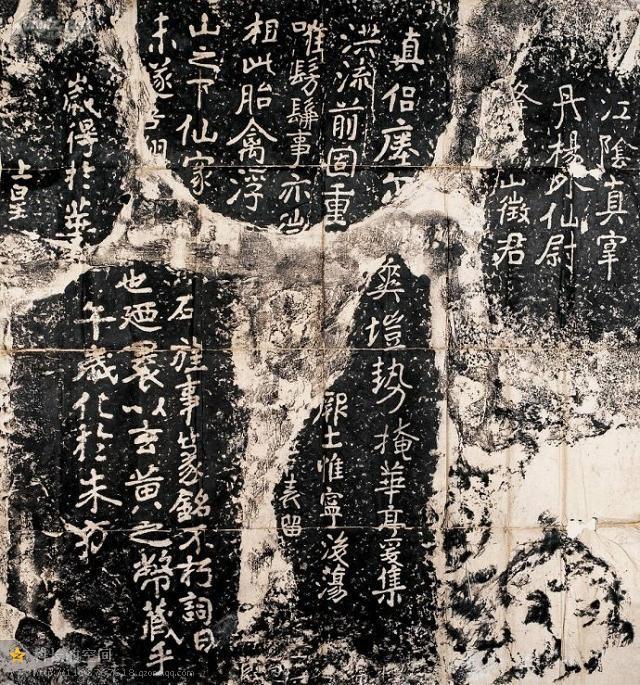 江陰真宰
丹楊外仙尉
山徵君
真侣瘞尔
洪流前固重
唯髣髴事亦
相此胎禽浮
山之下仙家
未遂吾翔
歲得於華
上皇
爽塏勢掩華亭爰集
厥土惟寧後蕩
表留
石旌事篆銘不朽詞曰
也廼裹以玄黄之幣藏乎
午歲化於朱方
的空间